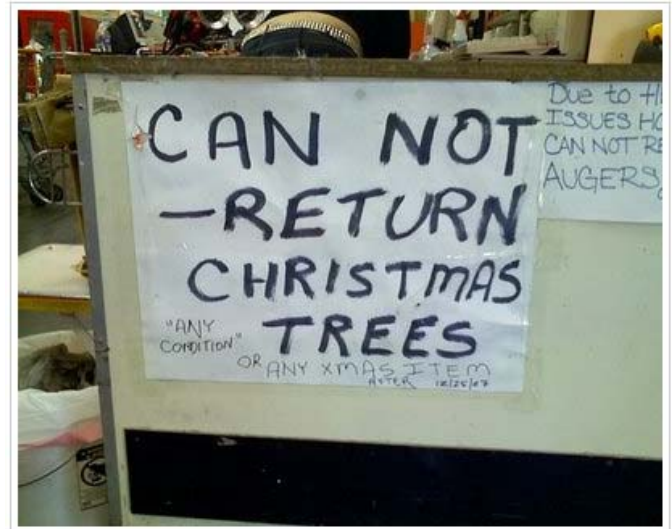 CAN NOT
—RETURN
CHRISTMAS
TREES
"ANY
CONDITION"
OR ANY XMAS ITEM
AFTER 12/25/07
Due to
ISSUES
CAN NOT
AUGERS